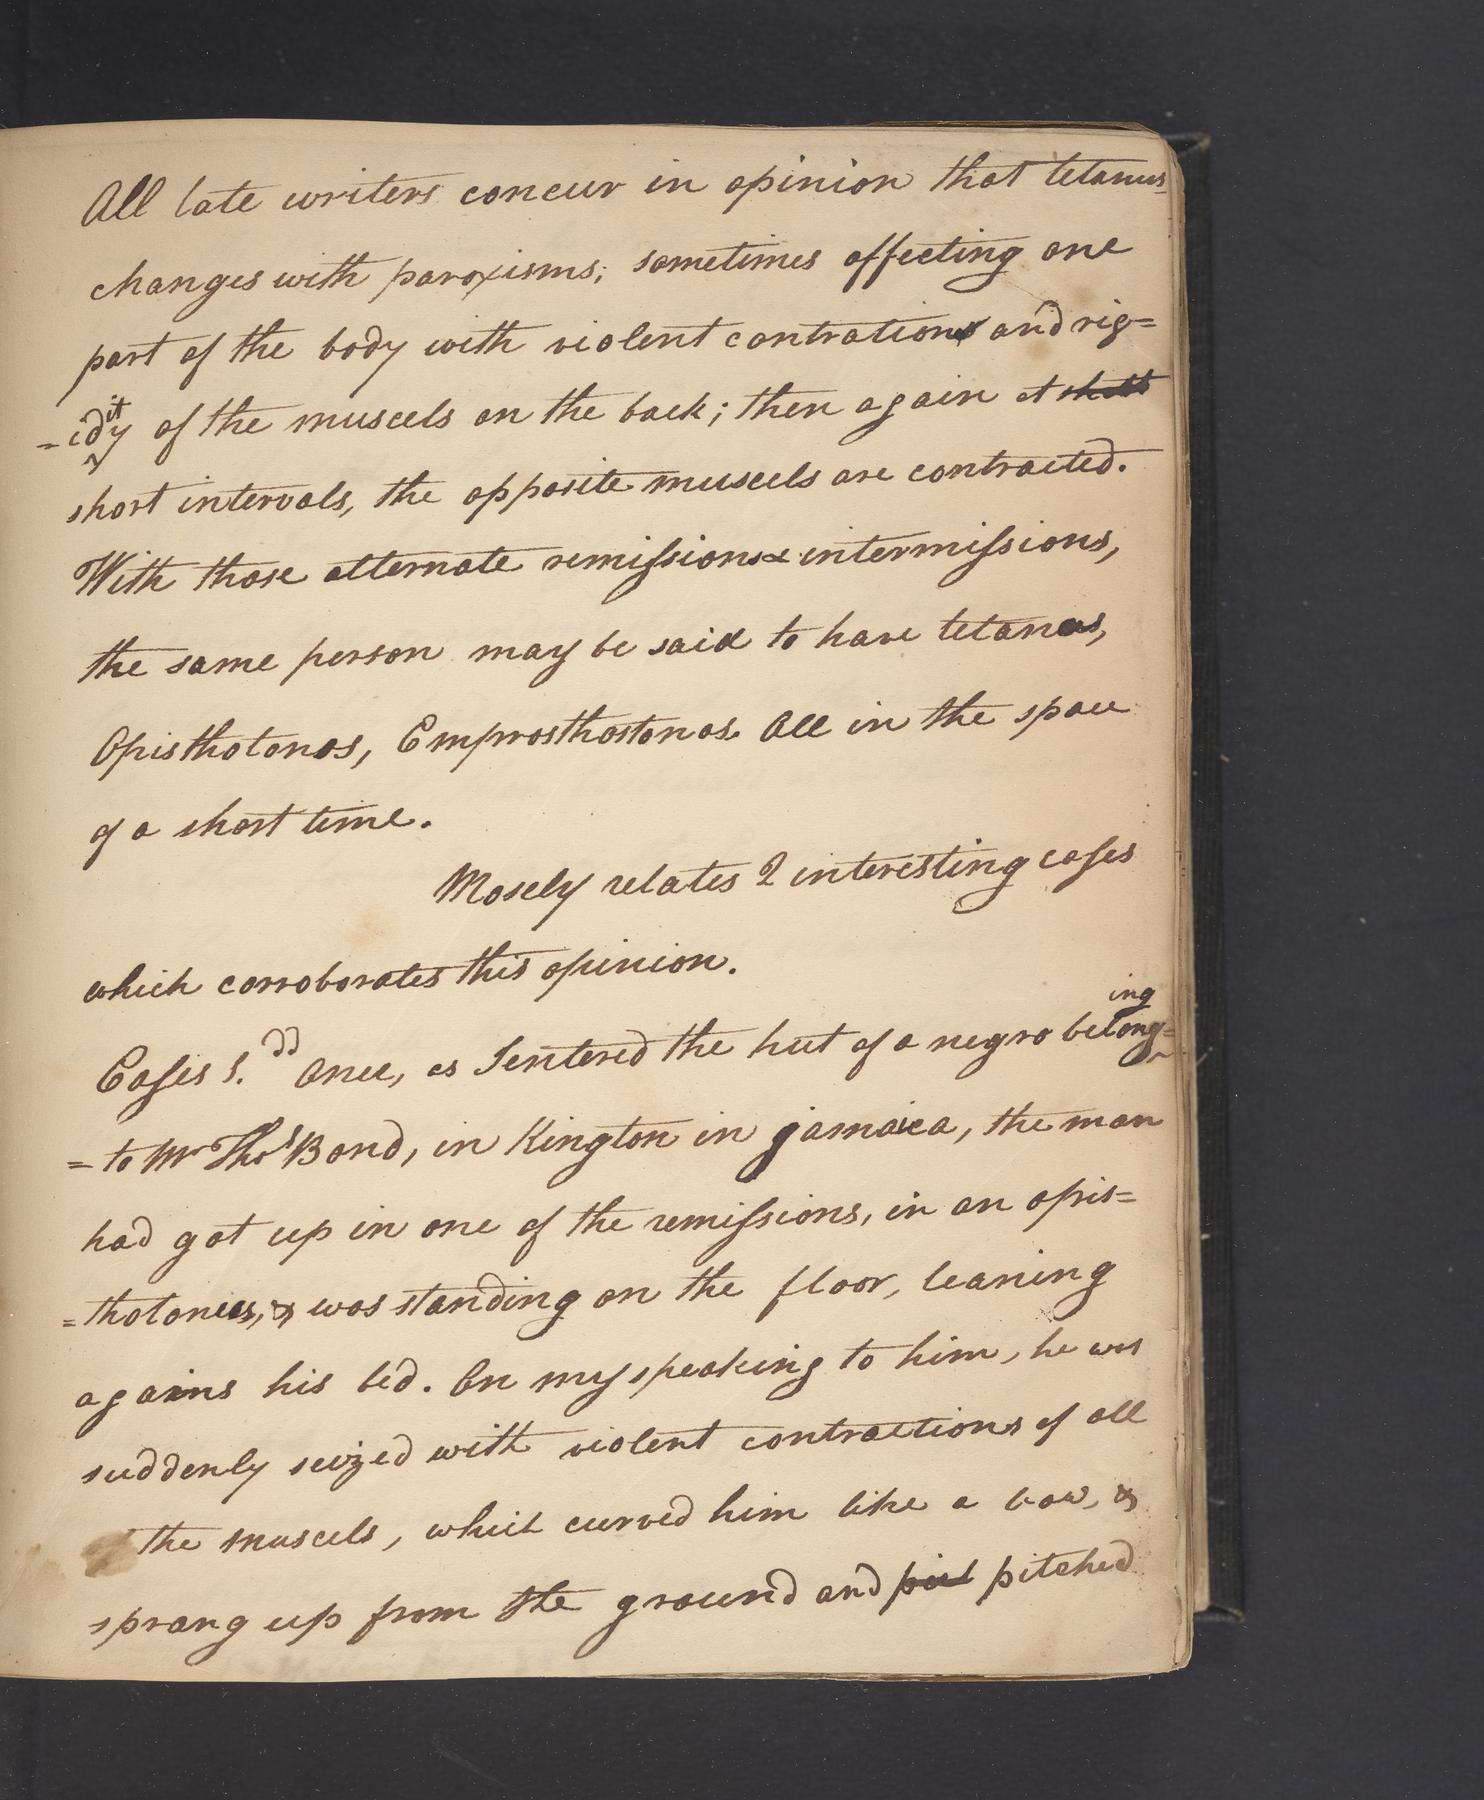 All late writers concur in opinion that tetanus
changes with paroxisms; sometimes affecting one
part of the body with violent contrations and rig=
=idity of the muscels on the back; then again at shott
short intervals, the opposite muscels are contracted.
With those alternate remissions & intermissions,
the same person may be said to have tetanus,
Opisthotonos, Emprosthostonos. All in the space
of a short time.
Mosely relates 2 interesting cases
which corroborates this opinion.
Cases 1. Once, as I entered the hut of a negro belonging
= to Mr Thos Bond, in Kington in jamaica, the man
had got up in one of the remissions, in an opis=
=thotonus, & was standing on the floor, leaning
agains his bed. On my speaking to him, he was
suddenly seized with violent contractions of all
the muscels, which curved him like a bow, &
sprang up from the ground and pitched